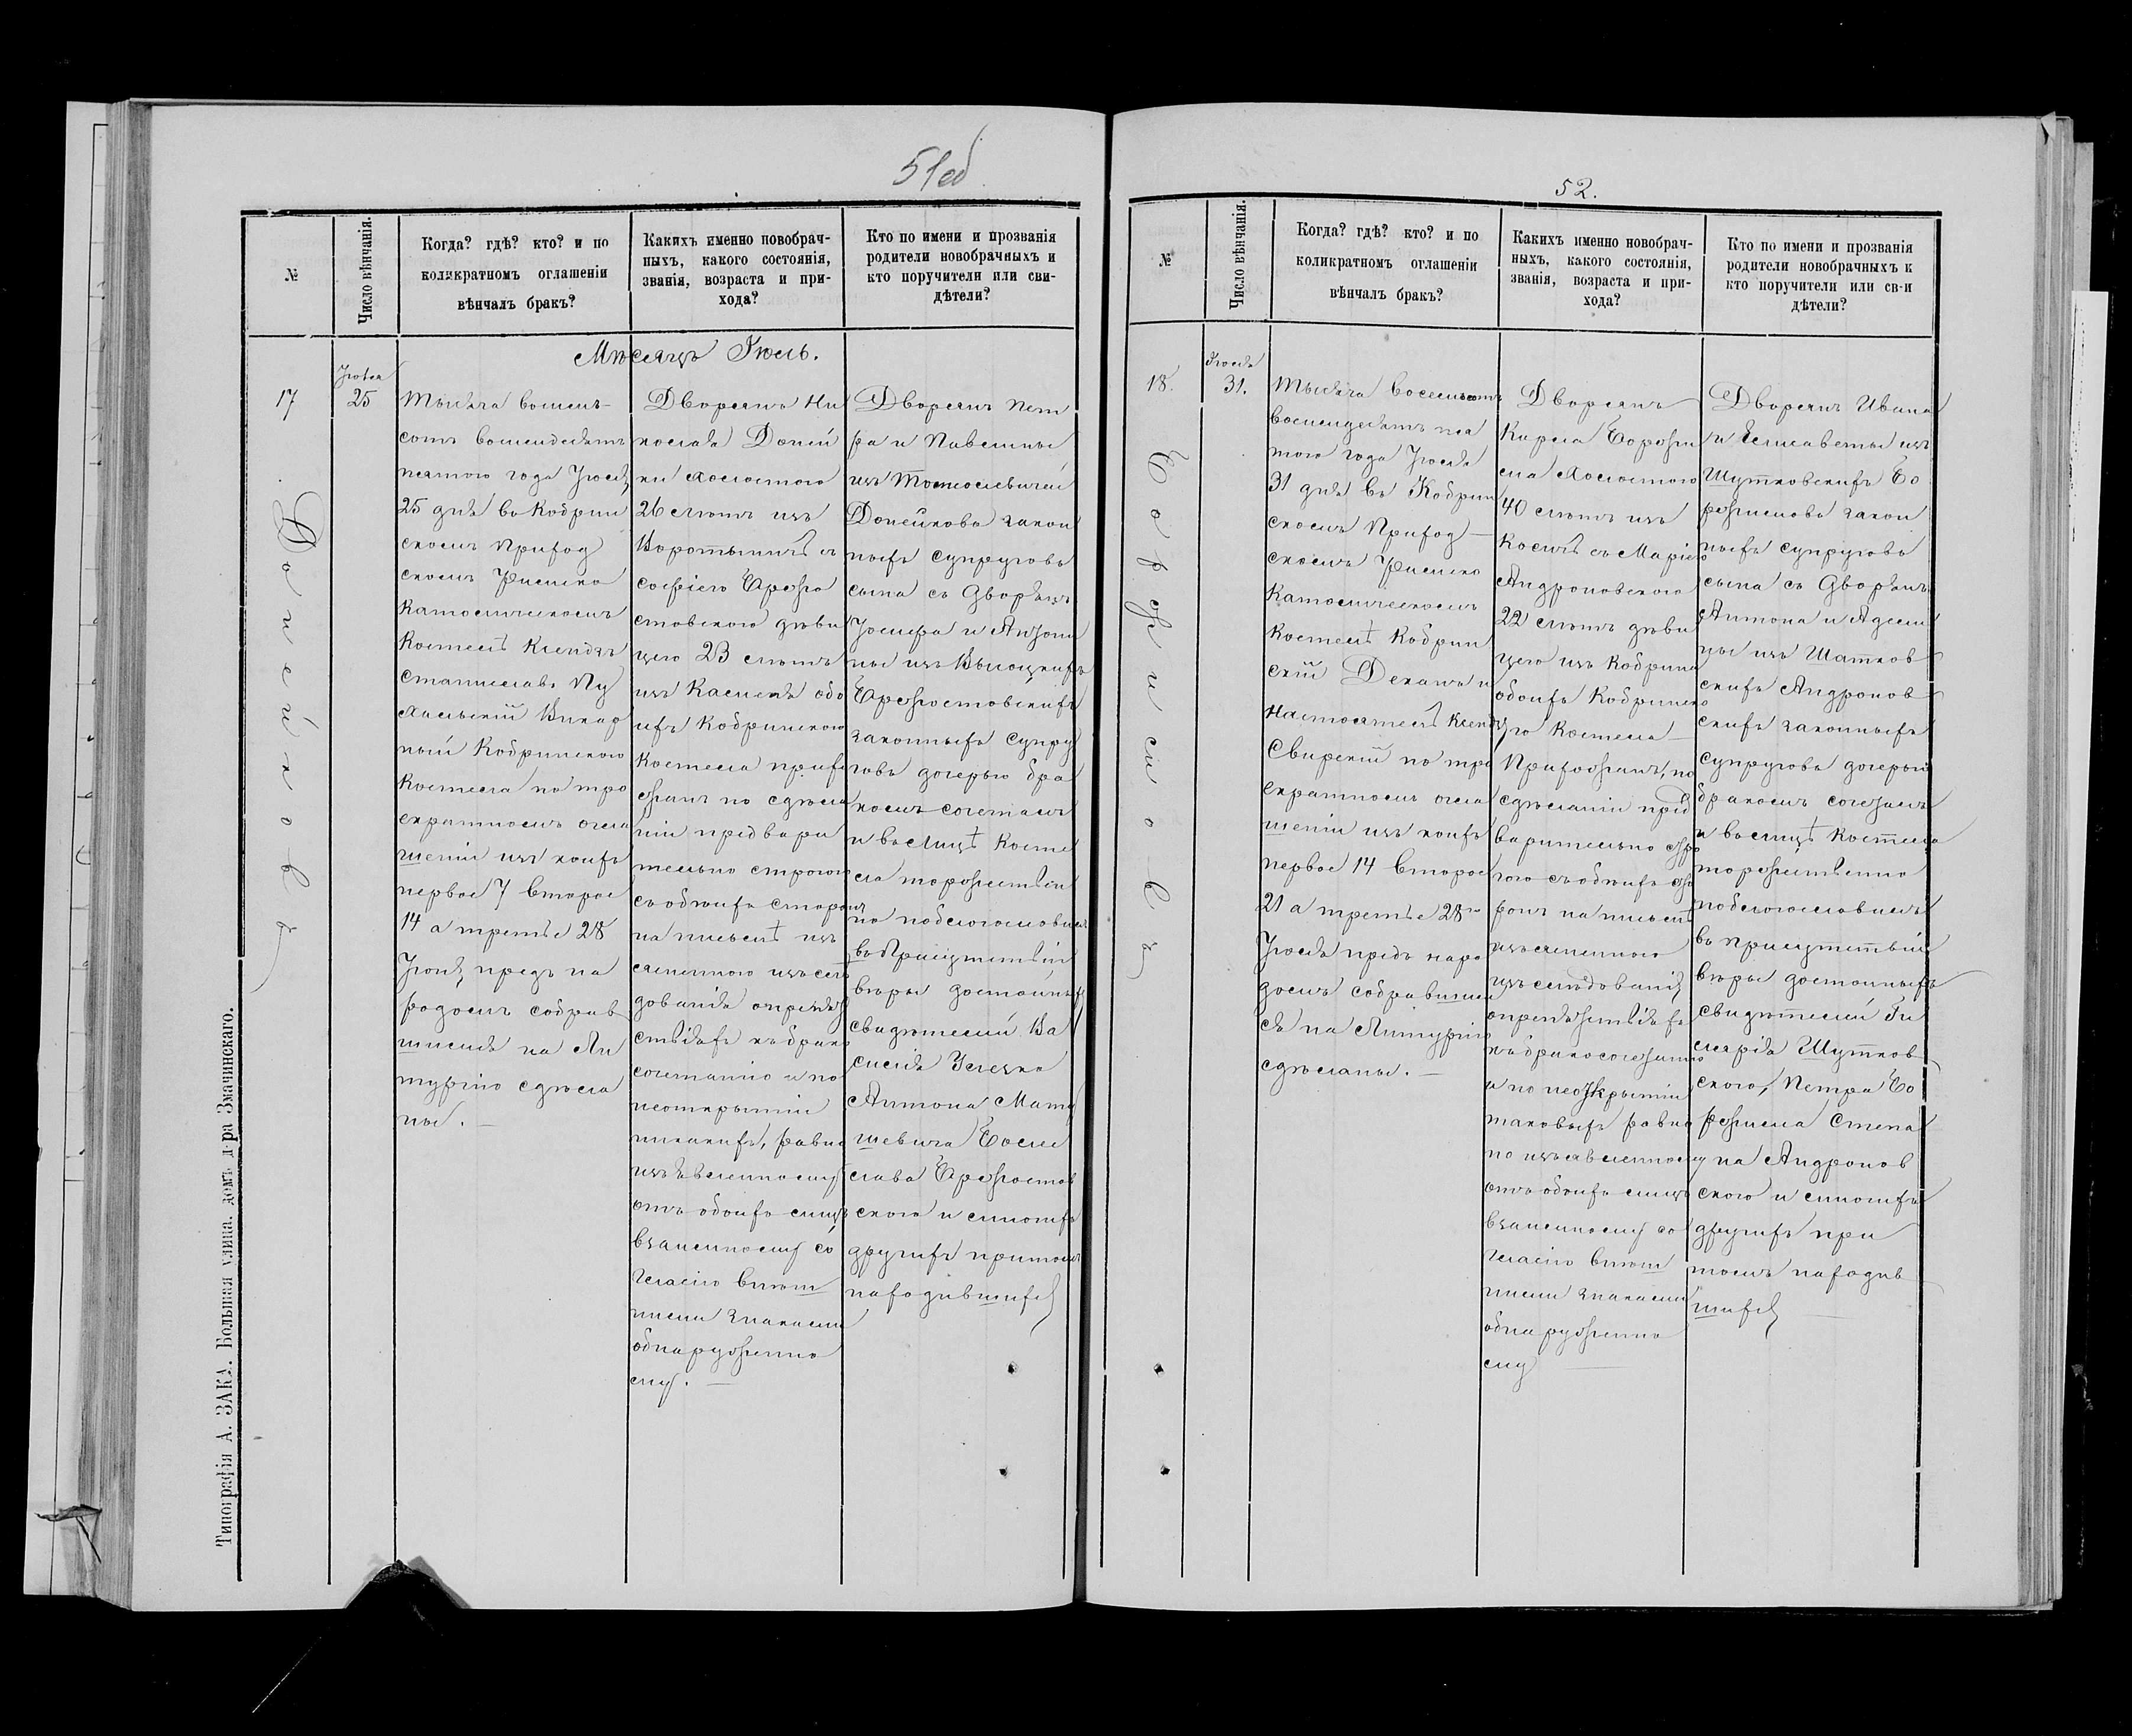 51об
№
Число вѣнчанія.
Когда? гдѣ? кто? и по
коликратномъ оглашеніи
вѣнчалъ бракъ?
Какихъ именно новобрач-
ныхъ, какого состоянія,
званія, возраста и при-
хода?
Кто по имени и прозванія
родители новобрачныхъ и
кто поручители или сви-
дѣтели?
Мѣсяцъ Іюль.
17
Іюля
25
Тысяча восемь-
сотъ восемдесятъ
пятого года Іюля
25 дня въ Кобрин
скомъ Приход
скомъ Римско
Католическомъ
Костелѣ Ксендзъ
Станиславъ
Викар
ный Кобринского
Костела по тро
екратномъ огла
шеніи изъ коихъ
первое 7 второе
14 а третье 28
предъ на
родомъ собрав
шимся на Ли
тургію сдѣла
ны.
Дворянъ Ни
колая Доней
ки холостого
26 лѣтъ изъ
съ
Софіею Ержо
стовскою дѣви
цею 23 лѣтъ
изъ обо
ихъ Кобринского
Костела прихо
жанъ по сдѣла
ніи предвари
тельно строгого
съ обоихъ сторонъ
на письмѣ изъ
ясненного изслѣ
дованія о препят
ствіяхъ къ брако
сочетанію и по
неоткрытіи
никакихъ, равно
изъявленному
отъ обоихъ лицъ
взаимному со
гласію внѣш
ними знаками
обнаруженно
му.
Дворянъ Пет
ра и Павелины
изъ
Донейковъ закон
ныхъ супруговъ
сына съ Дворянъ
Іосифа и Антони
ны изъ Высоцкихъ
Ержостовскихъ
законныхъ супру
говъ дочерью бра
комъ сочеталъ
и въ лицѣ Косте
ла торжествен
но поблагословилъ
въ Присутствіи
вѣры достойныхъ
свидѣтелей Ва
силія
Антона Мату
шевича Боле
слава Ержостов
ского и многихъ
другихъ притомъ
находившихся
Донейковъ
Типографія А. ЗАКА. Большая улица, домъ д-ра Змачинскаго.
52.
№
Число вѣнчанія.
Когда? гдѣ? кто? и по
коликратномъ оглашеніи
вѣнчалъ бракъ?
Какихъ именно новобрач-
ныхъ, какого состоянія,
званія, возраста и при-
хода?
Кто по имени и прозванія
родители новобрачныхъ и
кто поручители или св-и
дѣтели?
18.
Іюля
31.
Тысяча восемьсотъ
восемдесятъ пя
того года Іюля
31 дня въ Кобрин
скомъ Приход
скомъ Римско
Католическомъ
Костелѣ Кобрин
скій Деканъ и
Настоятель Ксендзъ
Свирскій по тро
екратномъ огла
шеніи изъ коихъ
первое 14 второе
21 а третье 28го
Іюля предъ наро
домъ собравшим
ся на Литургію
сдѣланы.
Дворянъ
Карла Боржи
ма Холостого
40 лѣтъ изъ
съ Маріею
Андроновскою
22 лѣтъ дѣви
цею изъ Кобрина
обоихъ Кобринско
го Костела
Прихожанъ, по
сдѣланіи пред
варительно стро
гого съ обоихъ сто
ронъ на письмѣ
изъясненного
изслѣдованія
о препятствіяхъ
къ бракосочетанію
и по неоткрытіи
таковыхъ равно
по изъявленному
отъ обоихъ лицъ
взаимному со
гласію внѣш
ними знаками
обнаруженно
му
Дворянъ Ивана
и Елисаветы изъ
Шутковскихъ Бо
ржимовъ закон
ныхъ супруговъ
сына съ Дворянъ
Антона и Адели
ны изъ Шатков
скихъ Андронов
скихъ законныхъ
супруговъ дочерью
бракомъ сочеталъ
и въ лицѣ Костела
торжественно
поблагословилъ
въ присутствіи
вѣры достойныхъ
свидѣтелей Ги
лярія Шутков
ского, Петра Бо
ржима Степа
на Андронов
ского и многихъ
другихъ при
томъ находив
шихся
Боржимовъ